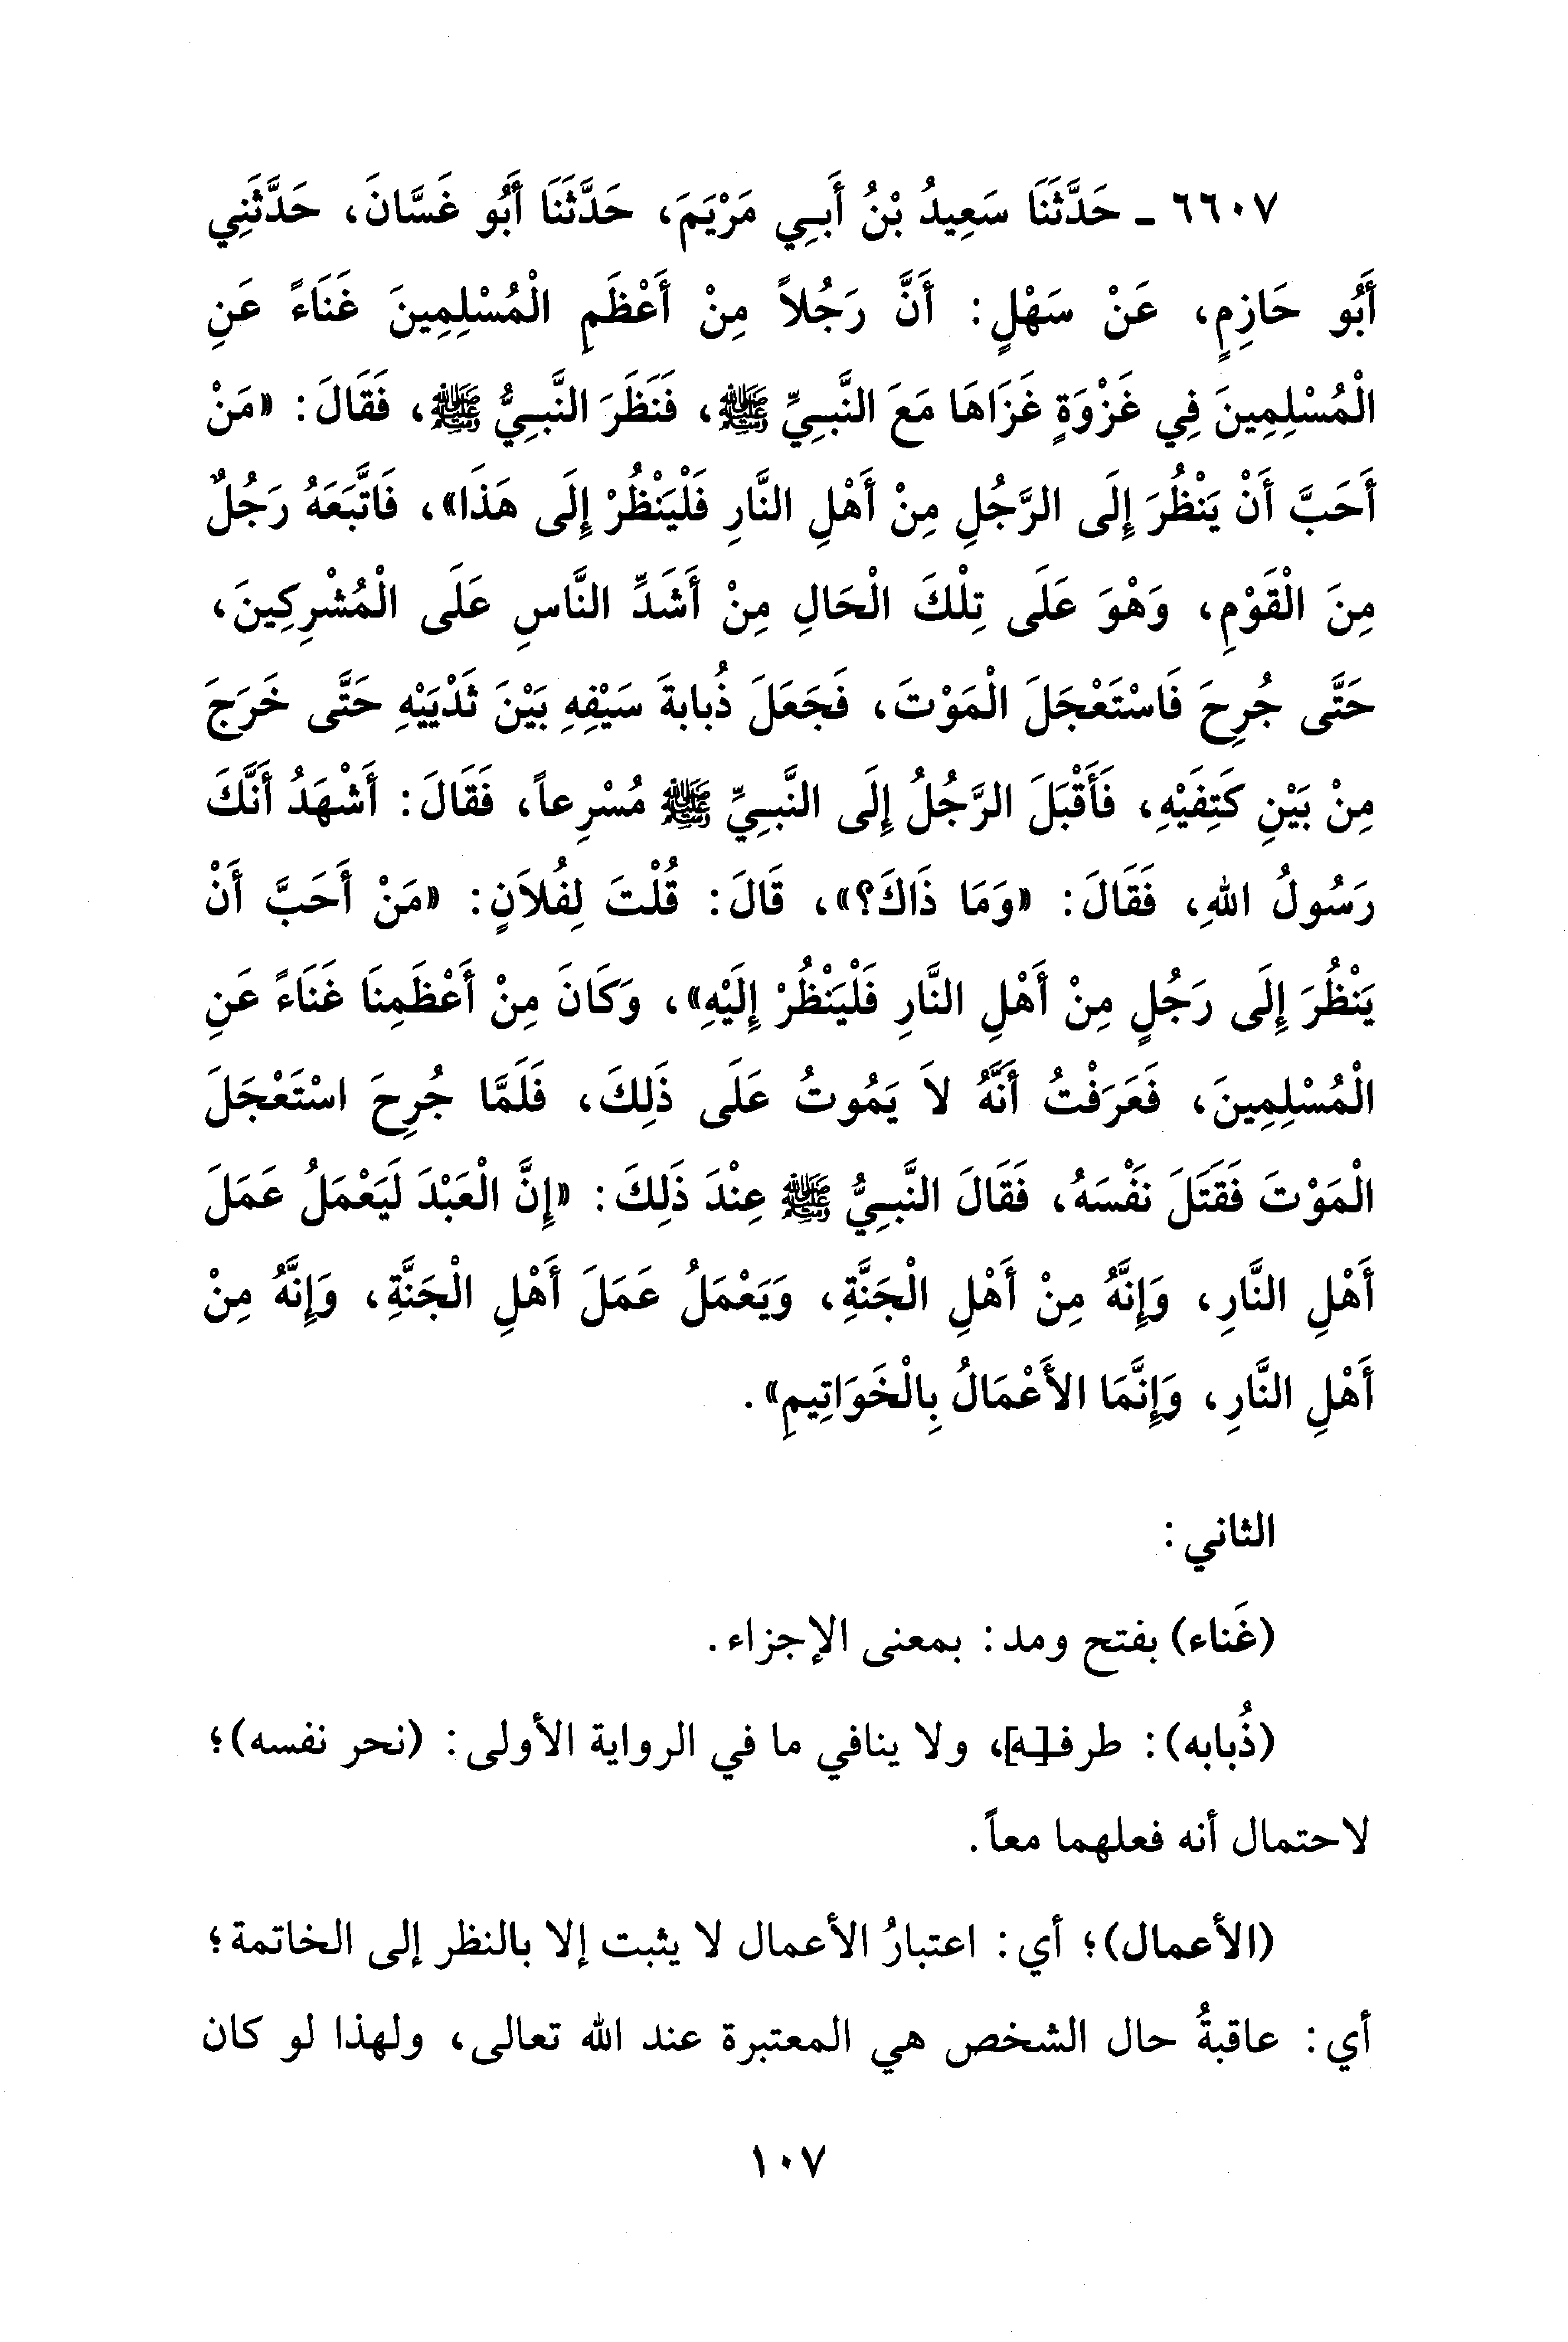 ٦٦٠٧ ـ حَدَّثَنَا سَعِيدُ بْنُ أَبِي مَرْيَمَ، حَدَّثَنَا أَبُو غَسَّانَ، حَدَّثَنِي
أَبُو حَازِمٍ، عَنْ سَهْلٍ: أَنَّ رَجُلاً مِنْ أَعْظَمِ الْمُسْلِمِينَ غَنَاءً عَنِ
الْمُسْلِمِينَ فِي غَزْوَةٍ غَزَاهَا مَعَ النَّبِيِّ ﷺ، فَنَظَرَ النَّبِيُّ ﷺ، فَقَالَ: «مَنْ
أَحَبَّ أَنْ يَنْظُرَ إِلَى الرَّجُلِ مِنْ أَهْلِ النَّارِ فَلْيَنْظُرْ إِلَى هَذَا»، فَاتَّبَعَهُ رَجُلٌ
مِنَ الْقَوْمِ، وَهْوَ عَلَى تِلْكَ الْحَالِ مِنْ أَشَدِّ النَّاسِ عَلَى الْمُشْرِكِينَ،
حَتَّى جُرِحَ فَاسْتَعْجَلَ الْمَوْتَ، فَجَعَلَ ذُبابةَ سَيْفِهِ بَيْنَ ثَدْيَيْهِ حَتَّى خَرَجَ
مِنْ بَيْنِ كَتِفَيْهِ، فَأَقْبَلَ الرَّجُلُ إِلَى النَّبِيِّ ﷺ مُسْرِعاً، فَقَالَ: أَشْهَدُ أَنَّكَ
رَسُولُ اللهِ، فَقَالَ: «وَمَا ذَاكَ؟»، قَالَ: قُلْتَ لِفُلاَنٍ: «مَنْ أَحَبَّ أَنْ
يَنْظُرَ إِلَى رَجُلٍ مِنْ أَهْلِ النَّارِ فَلْيَنْظُرْ إِلَيْهِ»، وَكَانَ مِنْ أَعْظَمِنَا غَنَاءً عَنِ
الْمُسْلِمِينَ، فَعَرَفْتُ أَنَّهُ لاَ يَمُوتُ عَلَى ذَلِكَ، فَلَمَّا جُرِحَ اسْتَعْجَلَ
الْمَوْتَ فَقَتَلَ نَفْسَهُ، فَقَالَ النَّبِيُّ ﷺ عِنْدَ ذَلِكَ: «إِنَّ الْعَبْدَ لَيَعْمَلُ عَمَلَ
أَهْلِ النَّارِ، وَإِنَّهُ مِنْ أَهْلِ الْجَنَّةِ، وَيَعْمَلُ عَمَلَ أَهْلِ الْجَنَّةِ، وَإِنَّهُ مِنْ
أَهْلِ النَّارِ، وَإِنَّمَا الأَعْمَالُ بِالْخَوَاتِيمِ».
الثاني:
(غَناء) بفتح ومد: بمعنى الإجزاء.
(ذُبابه): طرفـ[ـه]، ولا ينافي ما في الرواية الأولى: (نحر نفسه)؛
لاحتمال أنه فعلهما معاً.
(الأعمال)؛ أي: اعتبارُ الأعمال لا يثبت إلا بالنظر إلى الخاتمة؛
أي: عاقبةُ حال الشخص هي المعتبرة عند الله تعالى، ولهذا لو كان
١٠٧